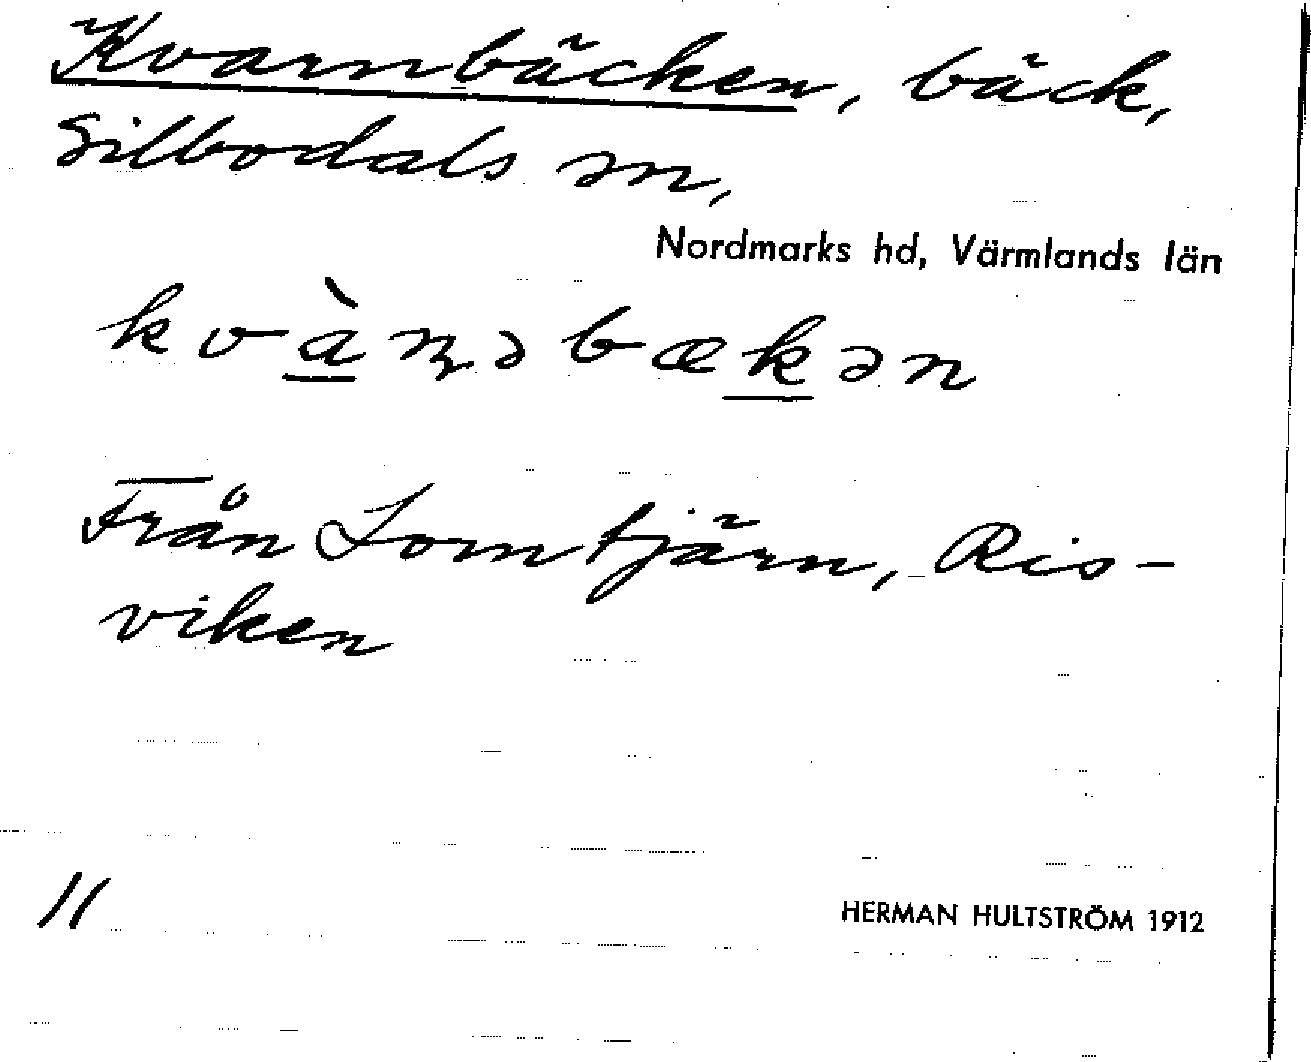 Kvarnbäcken, bäck,
Silbodals sn,
Nordmarks hd, Värmlands län
kvàɳəbækən
Från Lomtjärn, Ris-
viken
11
HERMAN HULTSTRÖM 1912